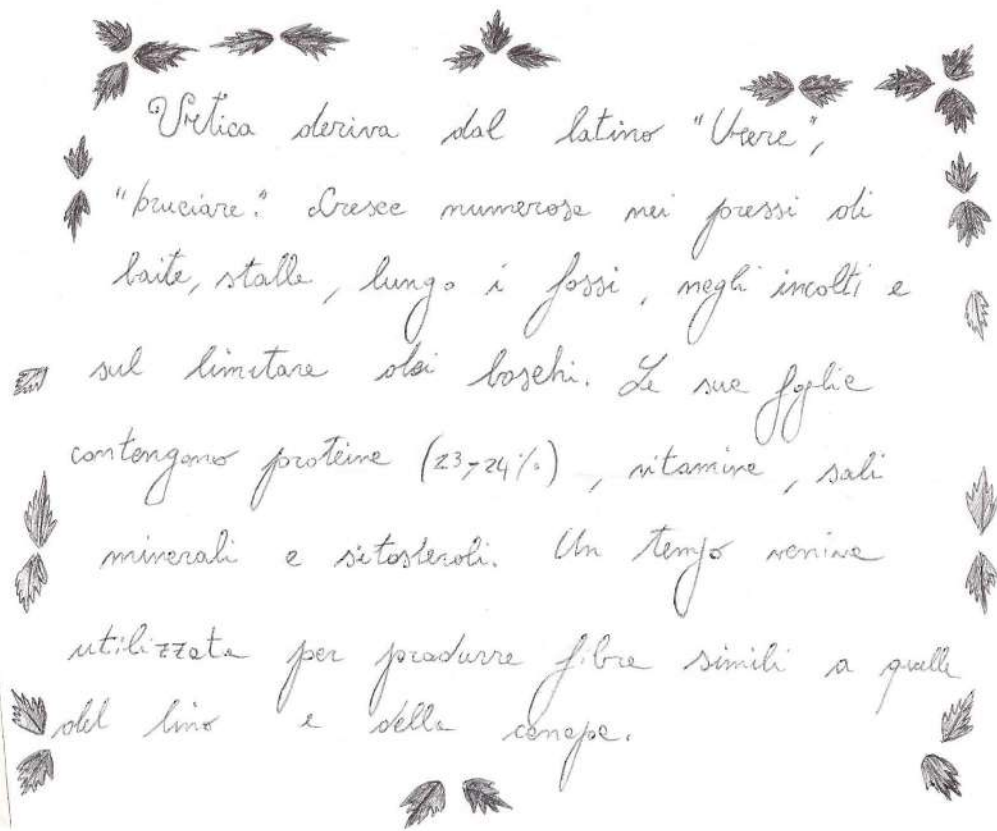 Urtica deriva dal latino "Urere",
"bruciare". Cresce numerosa nei pressi di
baite, stalle, lungo i fossi, negli incolti e
sul limitare dei boschi. Le sue foglie
contengono proteine (23,24%), vitamine, sali
minerali e sitosteroli. Un tempo veniva
utilizzata per produrre fibre simili a quelle
del lino e della canapa.